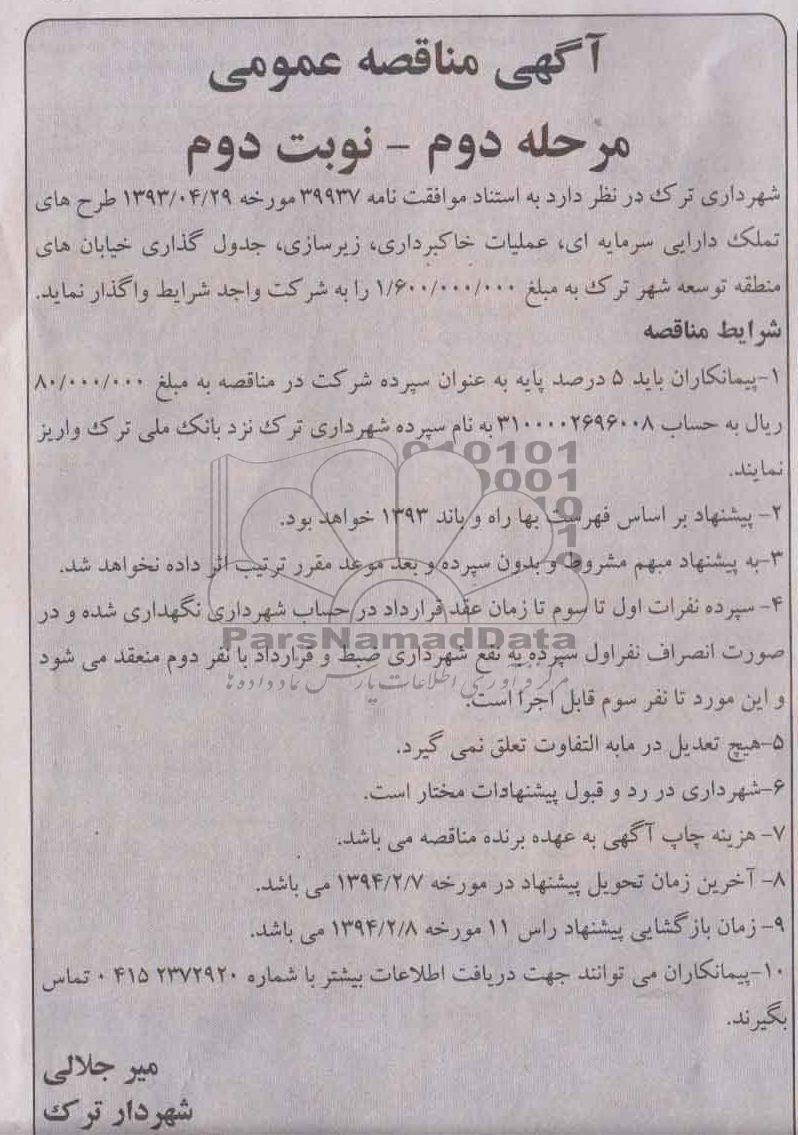 آگهی مناقصه عمومی
مرحله دوم - نوبت دوم
شهرداری ترک در نظر دارد به استناد موافقت نامه ۳۹۹۳۷ مورخه ۱۳۹۳/۰۴/۲۹ طرح های
تملک دارایی سرمایه ای، عملیات خاکبرداری، زیرسازی، جدول گذاری خیابان های
منطقه توسعه شهر ترک به مبلغ ۱/۶۰۰/۰۰۰/۰۰۰ را به شرکت واجد شرایط واگذار نماید.
شرایط مناقصه
۱-پیمانکاران باید ۵ درصد پایه به عنوان سپرده شرکت در مناقصه به مبلغ ۸۰/۰۰۰/۰۰۰
ریال به حساب ۳۱۰۰۰۰۲۶۹۶۰۰۸ به نام سپرده شهرداری ترک نزد بانک ملی ترک واریز
نمایند.
۲- پیشنهاد بر اساس فهرست بها راه و باند ۱۳۹۳ خواهد بود.
۳-به پیشنهاد مبهم مشروط و بدون سپرده و بعد موعد مقرر ترتیب اثر داده نخواهد شد.
۴- سپرده نفرات اول تا سوم تا زمان عقد قرارداد در حساب شهرداری نگهداری شده و در
ParsNamadData
صورت انصراف نفراول سپرده به نفع شهرداری ضبط و قرارداد با نفر دوم منعقد می شود
و این مورد تا نفر سوم قابل اجرا است.
۵-هیچ تعدیل در مابه التفاوت تعلق نمی گیرد.
۶-شهرداری در رد و قبول پیشنهادات مختار است.
۷- هزینه چاپ آگهی به عهده برنده مناقصه می باشد.
۸- آخرین زمان تحویل پیشنهاد در مورخه ۱۳۹۴/۲/۷ می باشد.
۹- زمان بازگشایی پیشنهاد راس ۱۱ مورخه ۱۳۹۴/۲/۸ می باشد.
۱۰-پیمانکاران می توانند جهت دریافت اطلاعات بیشتر با شماره ۲۳۷۲۹۲۰ ۰۴۱۵ تماس
بگیرند.
میر جلالی
شهردار ترک